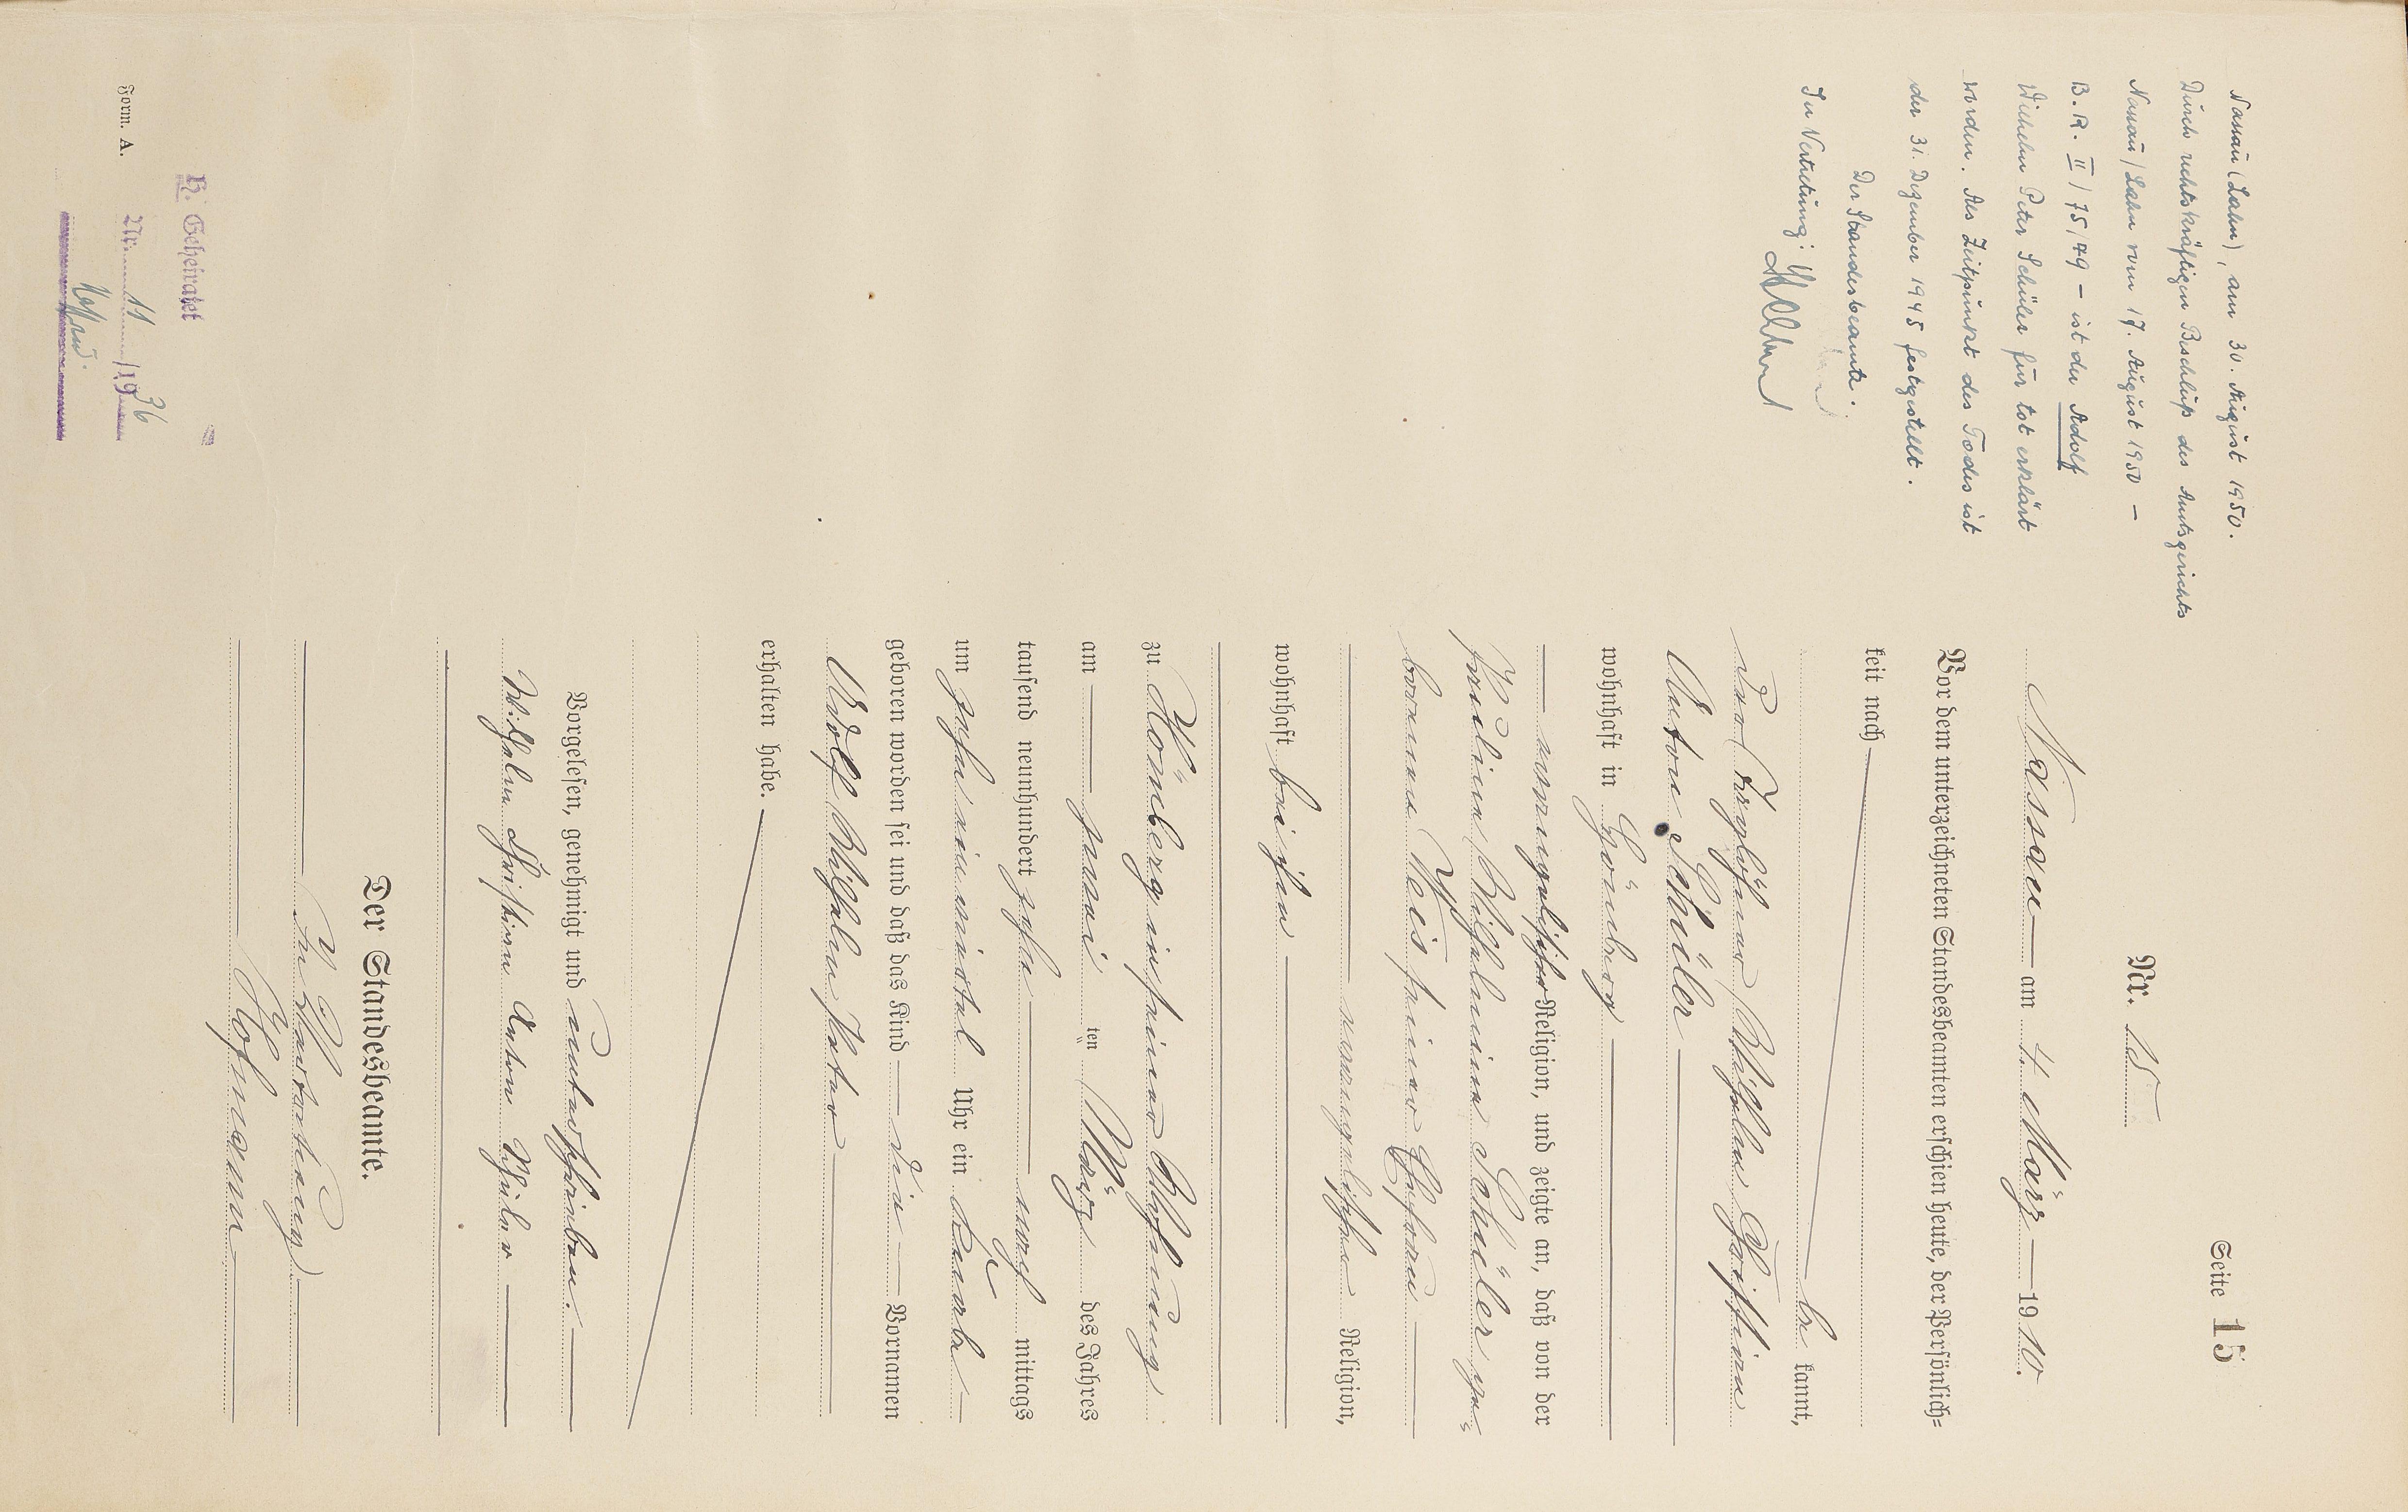 Seite 15
Nr. 15
Nassau am 4. März 1910.
Vor dem unterzeichneten Standesbeamten erschien heute, der Persönlich=
keit nach
be kannt,
der Wilhelm Christian
Anton Schüler
wohnhaft in Hömberg
evangelischer Religion, und zeigte an, daß von der
Wilhelmine Schüler ge=
borenen Weis seiner Ehefrau
evangelischer Religion,
wohnhaft bei ihm
zu Hömberg in seiner Wohnung
am zwei ten März des Jahres
tausend neunhundert zehn nach mittags
um zehn ein viertel Uhr ein Knabe
geboren worden sei und daß das Kind die Vornamen
Adolf Wilhelm Peter
erhalten habe.
Vorgelesen, genehmigt und unterschrieben.
Wilhelm Christian Anton Schüler
Der Standesbeamte.
In Vertretung
Hofmann
Nassau (Lahn), am 30. August 1950.
Durch rechtskräftigen Beschluß des Amtsgerichts
Nassau/Lahn vom 17. August 1950 –
B. R. II / 75/49 – ist der Adolf
Wilhelm Peter Schüler für tot erklärt
worden. Als Zeitpunkt des Todes ist
der 31. Dezember 1945 festgestellt.
Der Standesbeamte.
In Vertretung:
H. Geheiratet
Nr. 11 /1936
Form. A.